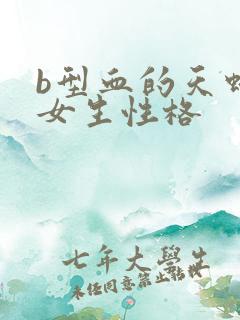 b型血的天蝎
女生性格
七年大学生
未经同意禁止转载